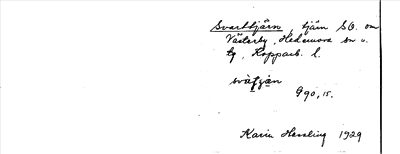 Svarttjärn, tjärn SO. om
Västerby, Hedemora sn o.
tg, Kopparb. l.
svàtjan
990, 15.
Karin Hessling 1929